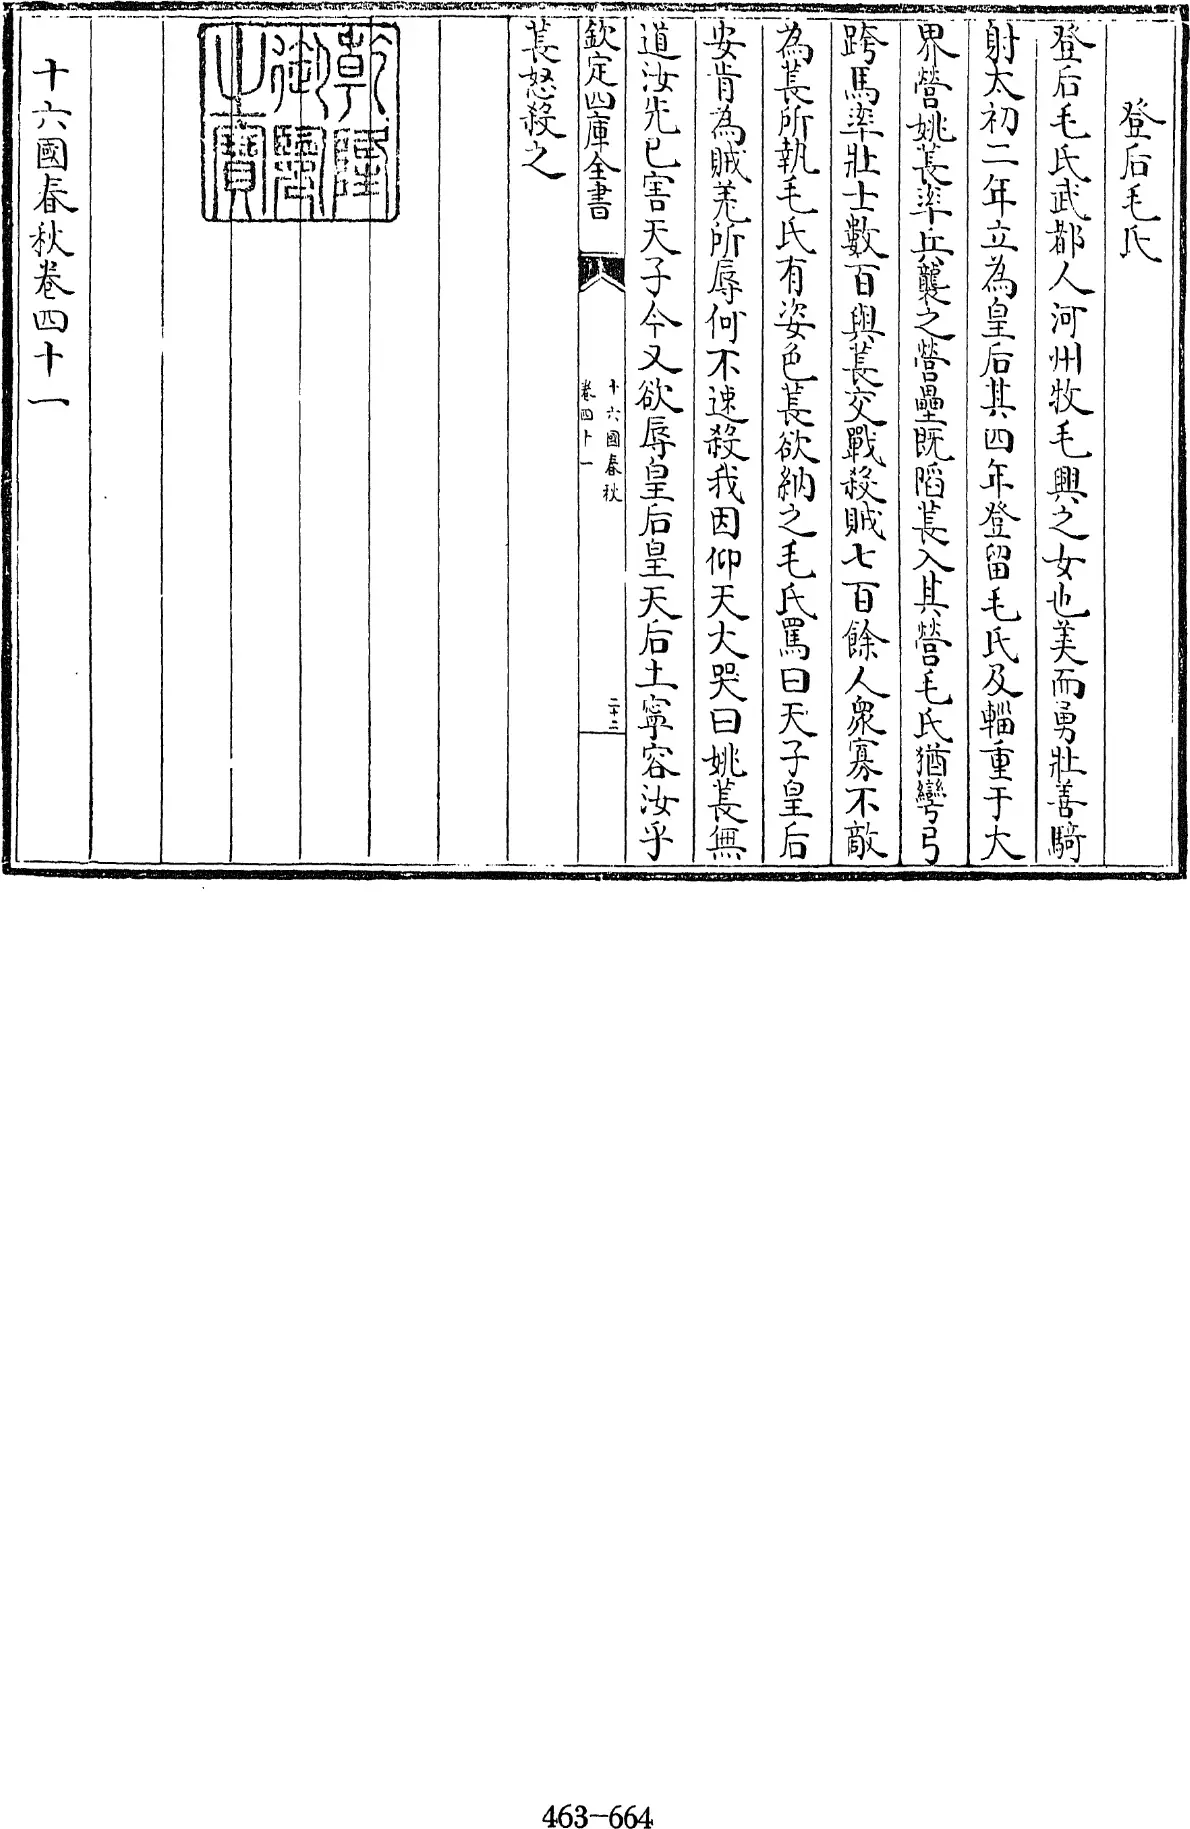 登后毛氏
登后毛氏武都人河州牧毛興之女也美而勇壯善騎
射太初二年立為皇后其四年登留毛氏及輜重于大
界營姚萇率兵襲之營壘既陷萇入其營毛氏猶彎弓
跨馬率壯士數百與萇交戰殺賊七百餘人衆寡不敵
為萇所執毛氏有姿色萇欲納之毛氏罵曰天子皇后
安肯為賊羌所辱何不速殺我因仰天大哭曰姚萇無
道汝先已害天子今又欲辱皇后皇天后土寧容汝乎
欽定四庫全書
十六國春秋
卷四十一
二十二
萇怒殺之
乾隆
御覽
之寶
十六國春秋卷四十一
463-664